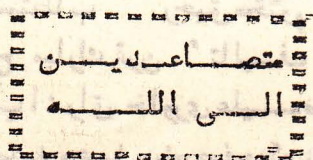 متصاعدين
الى الله